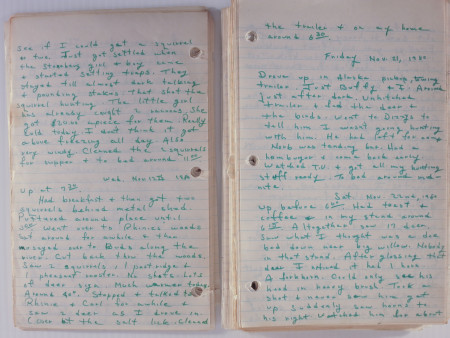 see if I could get a squirrel
or two. Just got settled when
the girl & boy came
& started setting traps. They
stayed till almost dark talking
& pounding stakes. That shot the
squirrel hunting. The little girl
has already caught 2 racoons. She
got $ apiece for them. Really
cold today I don't think it got
above freezing all day. Also
very windy. Cleaned the squirrels
for supper & to bed around 11
Wed. Nov. 12th 1980
up at 7 30
Had breakfast & then got two
squirrels behind metal shed.
around place until
Went over to woods
hunt around for awhile & then
over to Buds along the
river. Cut back thru the woods.
Saw 2 squirrels, 1 partridge
1 pheasant rooster. Lots & lots
of deer sign. Much warmer today.
Around 40°. Stopped & talked to
Rhine & Carol for awhile &
saw 2 deer as I drove in.
Close at the salt lick. Closed
the trailer & on my home
around 6 30
Friday Nov. 21, 1980
Drove up in Alaska pickup, towing
trailer. Just Buffy & I. Arrived
just after dark. Unhitched
trailer & fed the deer &
the birds. Went to to
tell him I wasn't going hunting
with him. He had left for
Norb was tending bar. Had a
hamburger & came back early
Watched T.V. & got all my hunting
stuff ready. To bed around mid-
nite.
Sat. Nov. 22nd, 1980
Up before 5 Had toast &
coffee & in my stand around
6 Altogether saw 17 deer.
Saw what I thought was a doe
bed down near big willow. Nobody
in that stand. After glassing that
deer I noticed it had 1 horn
A forkhorn. Could only see his
head in heavy brush. Took a
shot & never saw him get
up. Suddenly saw horns to
his right. Watched him for about